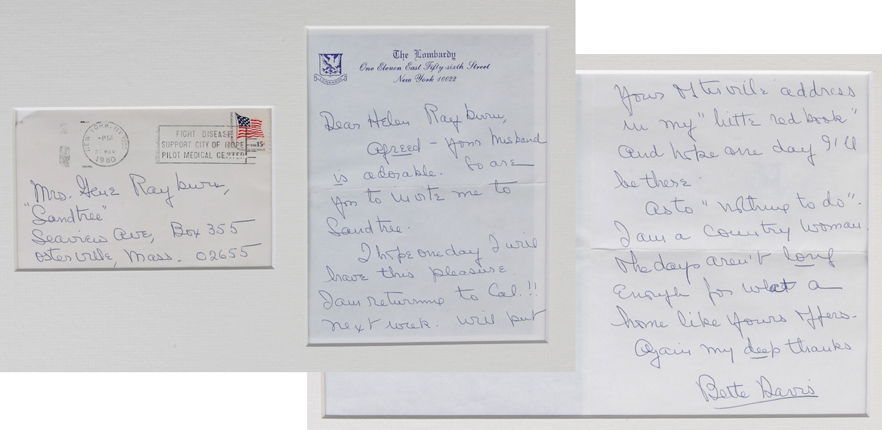 NEW YORK, NY
1980
FIGHT DISEASE
SUPPORT CITY OF HOPE
PILOT MEDICAL CENTER
15¢
Mrs. Gene Rayburn,
"Sandtree"
Seaview Ave, Box 355
Osterville, Mass. 02655
The Lombardy
One Eleven East Fifty-sixth Street
New York 10022
Dear Helen Rayburn,
Agreed – your husband
is adorable. So are
you to invite me to
Sandtree.
I hope one day I will
have this pleasure
I am returning to Cal.!!
next week. Will put
your Osterville address
in my "little red book"
and hope one day I'll
be there.
As to "nothing to do".
I am a country woman
The days aren't long
enough for what a
home like yours offers.
Again my deep thanks
Bette Davis